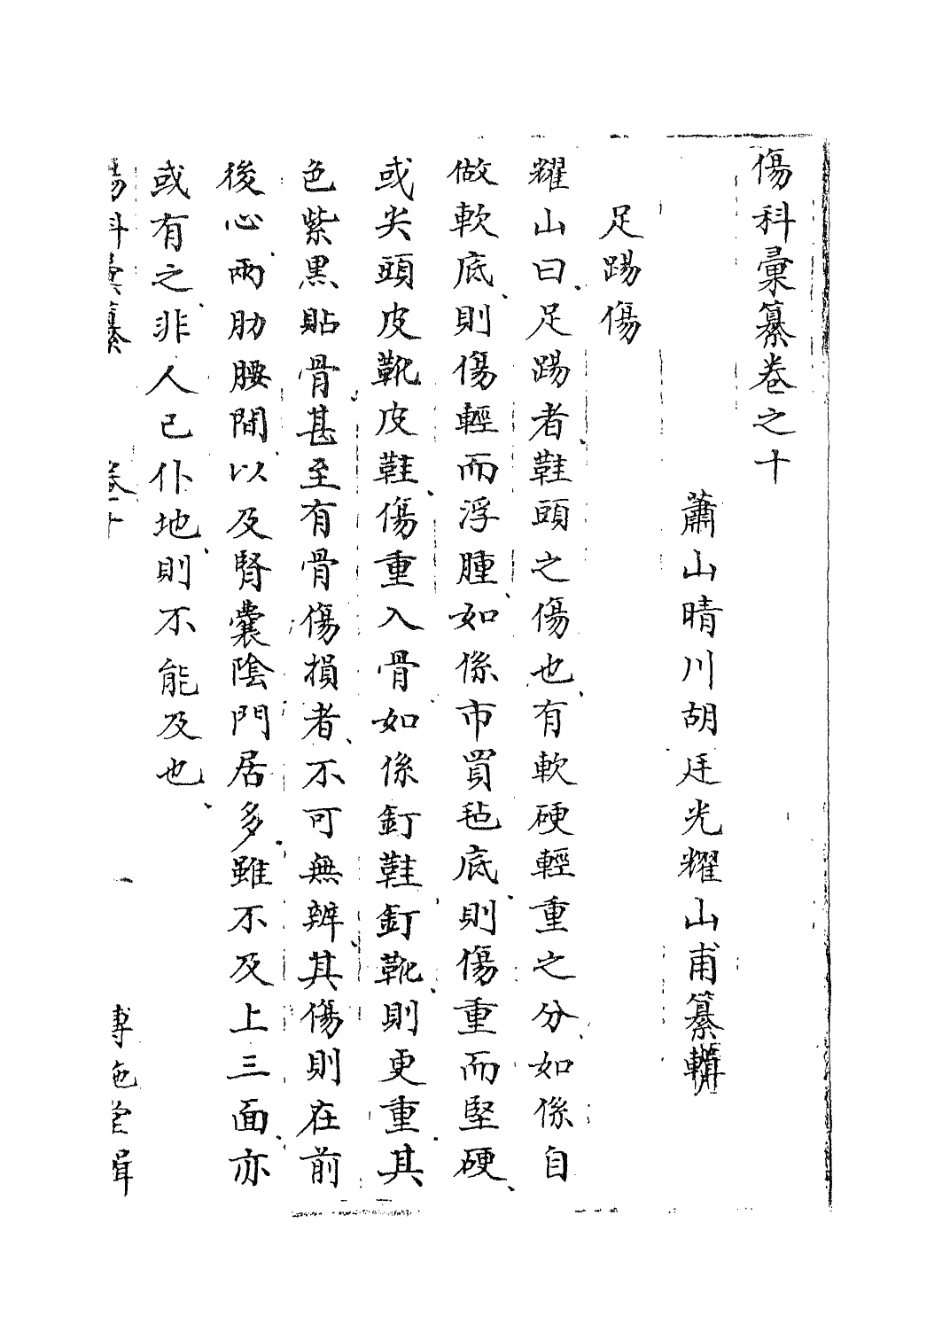 傷科彙纂卷之十
蕭山晴川胡廷光耀山甫纂輯
足踢傷
耀山曰足踢者鞋頭之傷也有軟硬輕重之分如係自
做軟底則傷輕而浮腫如係市買毡底則傷重而堅硬
或尖頭皮靴皮鞋傷重入骨如係釘鞋釘靴則更重其
色紫黑貼骨甚至有骨傷損者不可無辨其傷則在前
後心兩肋腰間以及腎囊陰門居多雖不及上三面亦
或有之非人已仆地則不能及也
傷科彙纂 卷十 一 博施堂輯